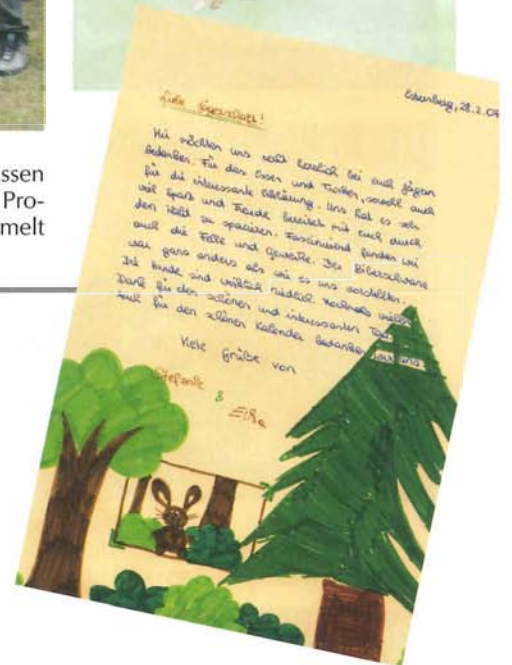 ssen
Pro-
melt
28.2.07
Liebe Jägerschaft!
Wir möchten uns recht herzlich bei euch Jägern
bedanken. Für das Essen und Trinken, sowohl auch
für die interessante Erklärung. Uns hat es sehr
viel Spaß und Freude bereitet mit euch durch
den Wald zu spazieren. Faszinierend fanden wir
auch die Felle und Geweihe. Der Biberschwanz
war ganz anders als wir es uns vorstellten.
Die Hunde sind wirklich niedlich. Nochmals vielen
Dank für den schönen und interessanten Tag.
Auch für den schönen Kalender bedanken wir uns.
Viele Grüße von
Stefanie
&
Elisa